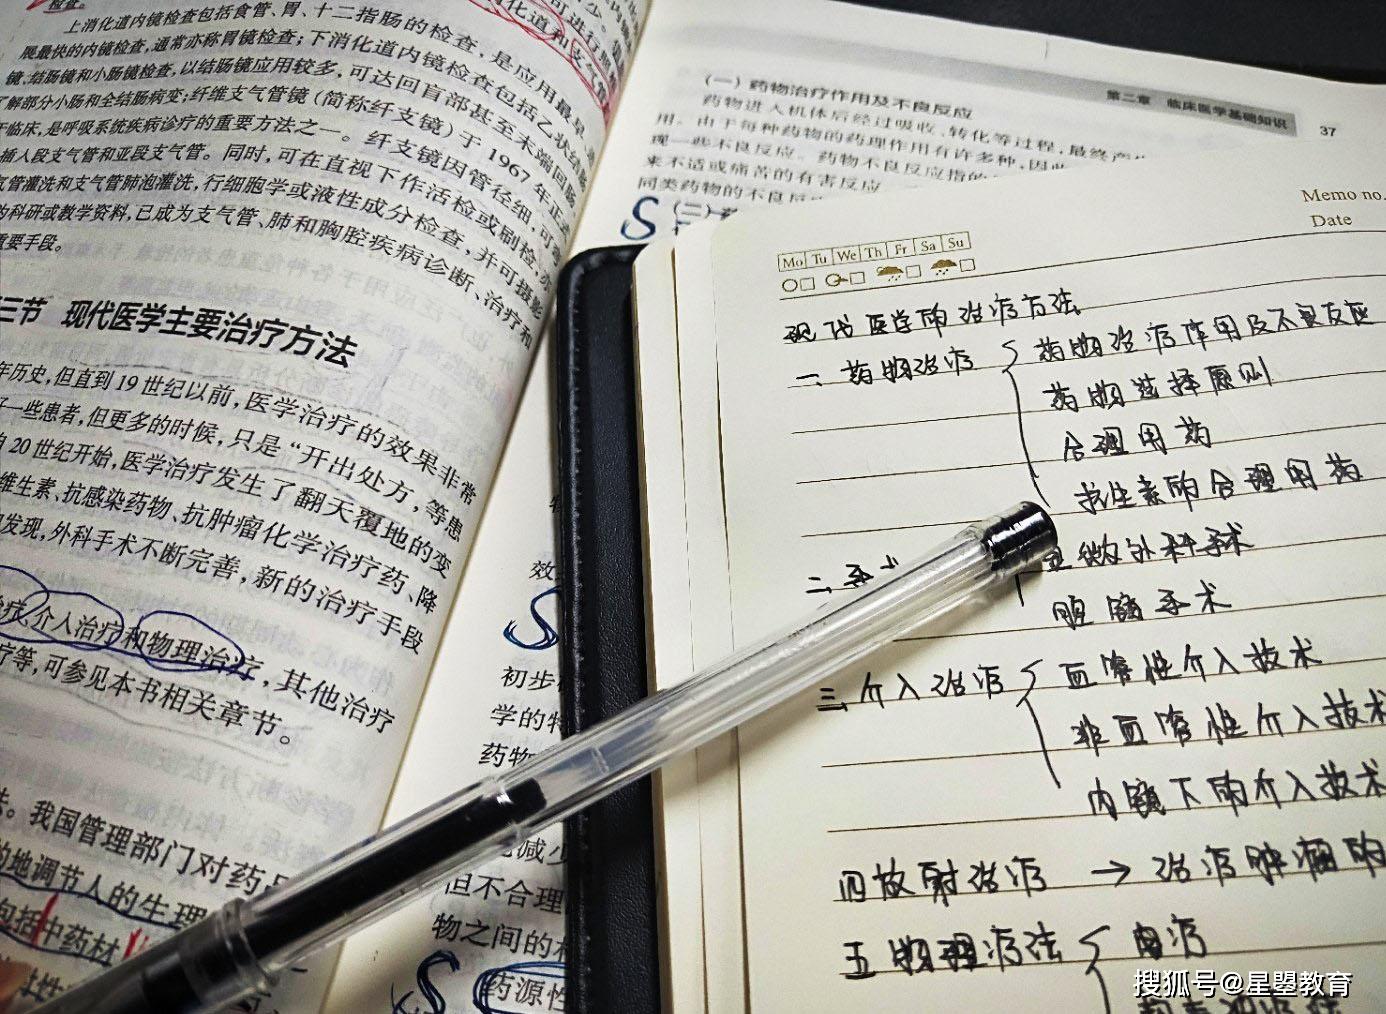 检查。
上消化道内镜检查包括食管、胃、十二指肠的检查，是应用最早、
展最快的内镜检查，通常亦称胃镜检查；下消化道内镜检查包括乙状结肠
镜、结肠镜和小肠镜检查，以结肠镜应用较多，可达回盲部甚至末端回肠
了解部分小肠和全结肠病变；纤维支气管镜（简称纤支镜）于1967年正式
于临床，是呼吸系统疾病诊疗的重要方法之一。纤支镜因管径细，可
插入段支气管和亚段支气管。同时，可在直视下作活检或刷检，亦
气管灌洗和支气管肺泡灌洗，行细胞学或液性成分检查，并可摄影
的科研或教学资料，已成为支气管、肺和胸腔疾病诊断、治疗和
重要手段。
三节 现代医学主要治疗方法
年历史，但直到19世纪以前，医学治疗的效果非常
好一些患者，但更多的时候，只是“开出处方，等患
自20世纪开始，医学治疗发生了翻天覆地的变
维生素、抗感染药物、抗肿瘤化学治疗药、降
发现，外科手术不断完善，新的治疗手段
介入治疗和物理治疗，其他治疗
疗等，可参见本书相关章节。
我国管理部门对药品
的地调节人的生理
包括中药材
第二章 临床医学基础知识 37
（一）药物治疗作用及不良反应
药物进入机体后经过吸收、转化等过程，最终产
用。由于每种药物的药理作用有许多种，因此
现一些不良反应。药物不良反应指的
来不适或痛苦的有害反应
同类药物的不良反应
S
（二）
效
S
初步
学的特
药物
减少
但不合理
物之间的相
S
药源性
Memo no.
Date
Mo Tu We Th Fr Sa Su
现代医学的治疗方法
一、药物治疗
药物治疗作用及不良反应
药物选择原则
合理用药
抗生素的合理用药
二、手术
显微外科手术
腔镜手术
三、介入治疗
血管性介入技术
非血管性介入技术
内镜下的介入技术
四放射治疗 → 治疗肿瘤的
五物理疗法
电疗
搜狐号@星曌教育